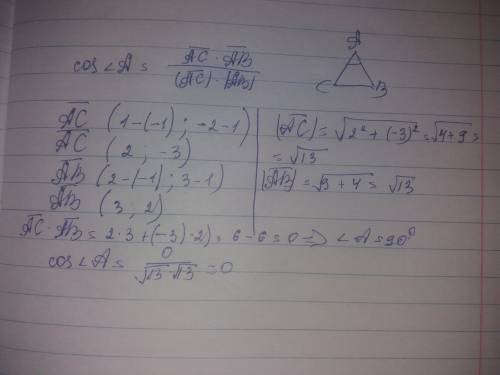 cos∠A = \frac{\overline{AC} · \overline{AB}}{|\overline{AC}| · |\overline{AB}|}
A
C B
\overline{AC} (1-(-1) ; -2-1)
\overline{AC} (2 ; -3)
\overline{AB} (2-(-1) ; 3-1)
\overline{AB} (3 ; 2)
|\overline{AC}| = \sqrt{2² + (-3)²} = \sqrt{4+9} =
= \sqrt{13}
|\overline{AB}| = \sqrt{9 + 4} = \sqrt{13}
\overline{AC} · \overline{AB} = 2·3 + (-3)·2) = 6 - 6 = 0 => ∠A = 90°
cos∠A = \frac{0}{\sqrt{13}·\sqrt{13}} = 0